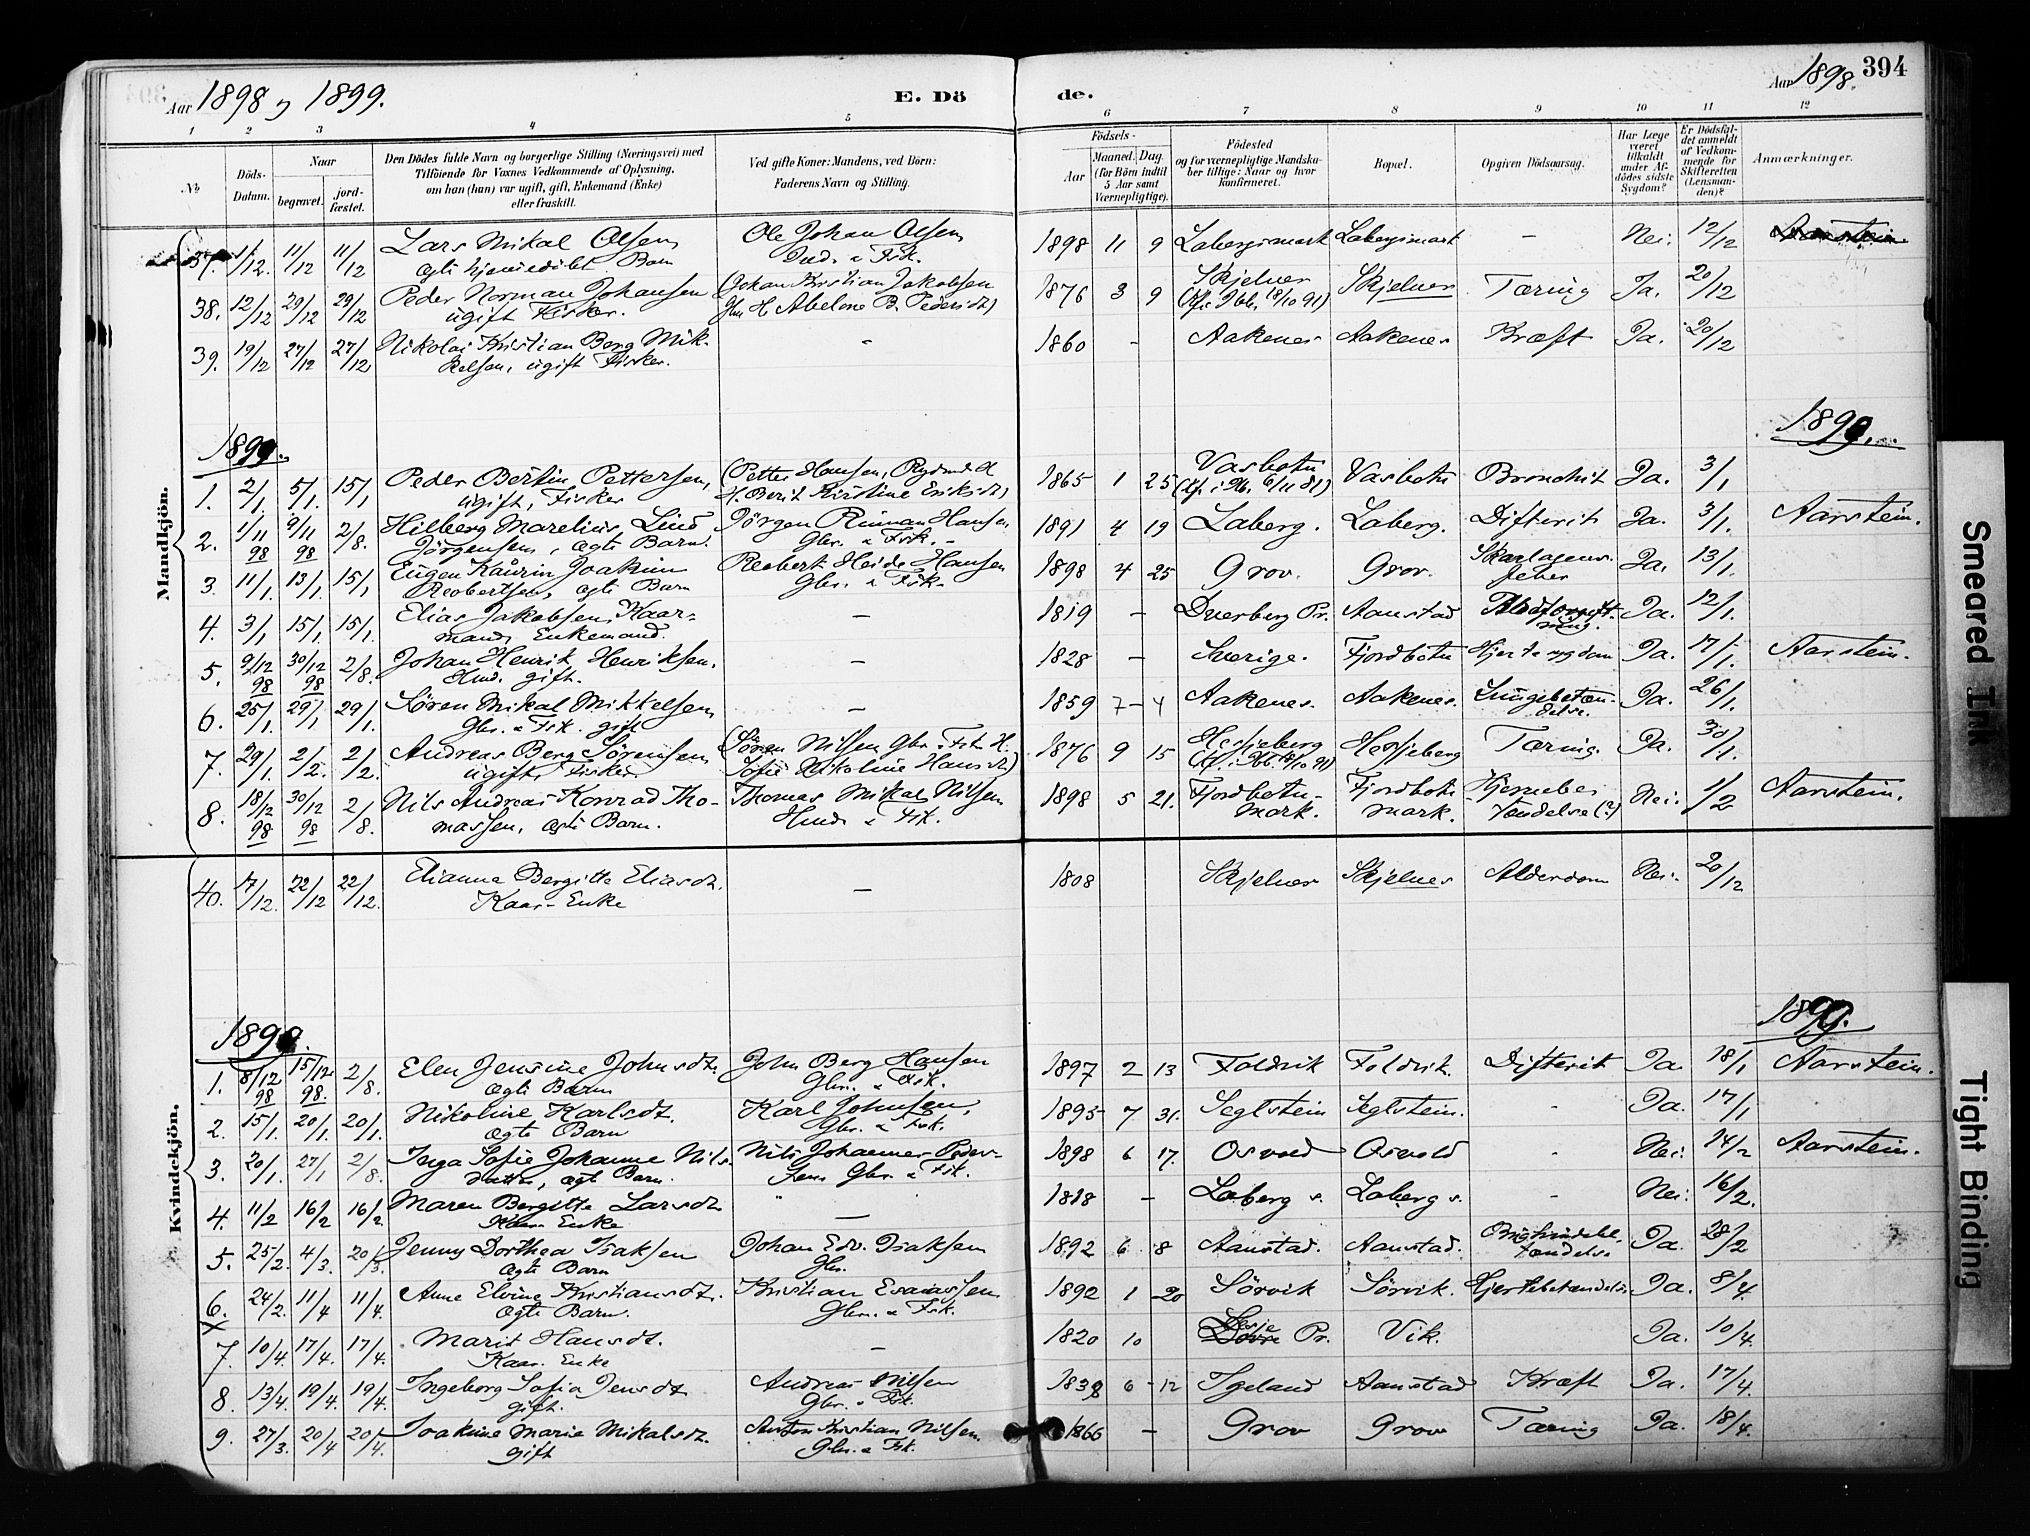 Aar 1898 og 1899.
E. Dö
de.
Aar 1898.
394
1 2 3 4 5 6 7 8 9 10 11 12
No
Döds-Datum.
Naar
begravet.
jord-fæstet.
Den Dödes fulde Navn og borgerlige Stilling (Næringsvei) med
Tilföiende for Voxnes Vedkommende af Oplysning,
om han (hun) var ugift, gift, Enkemand (Enke)
eller fraskilt.
Ved gifte Koner: Mandens, ved Börn:
Faderens Navn og Stilling.
Födsels-
Aar
Maaned. Dag.
(for Börn indtil
5 Aar samt
Værnepligtige).
Födested
og for værnepligtige Mandska-
ber tillige: Naar og hvor
konfirmeret.
Bopæl.
Opgiven Dödsaarsag.
Har Læge
været
tilkaldt
under Af-
dödes sidste
Sygdom?
Er Dödsfal-
det anmeldt
af Vedkom-
mende for
Skifteretten
(Lensman-
den)?
Anmærkninger.
Mandkjön.
37. 1/12. 11/12 11/12 Lars Mikal Olsen, Ole Johan Olsen, 1898 11 9 Labergsmark Labergsmark - Nei. 12/12 Aarstein
ægte hjemmedøbt Barn Inds. & Fisk.
38. 12/12 29/12 29/12 Peder Norman Johansen (Johan Kristian Jakobsen 1876 3 9 Skjelnes Skjelnes Tæring Ja. 20/12
ugift Fisker. Gbr. H. Abelone B. Pedersdt) (Kf. i Ibb. 18/10 91)
39. 19/12 27/12 27/12 Nikolai Kristian Berg Mik- - 1860 - Aakenes Aakenes Kræft Ja. 20/12
kelsen, ugift Fisker.
1899.
1899.
1. 2/1 5/1. 15/1 Peder Bertin Pettersen, (Petter Hansen, Rydmd. & 1865 1 25 Vasbotn Vasbotn Bronchit Ja. 3/1
ugift, Fisker H. Berit Kirstine Eriksdt) (Kf. i Ibb. 6/11 81)
2. 1/11 98 9/11 98 2/8. Hilberg Marelius Lind Jörgen Riman Hansen 1891 4 19 Laberg. Laberg. Difterit Ja. 3/1. Aarstein.
Jörgensen, ægte Barn. Gbr. & Fisk. -
3. 11/1. 13/1. 15/1 Eugen Kaurin Joakim Reobert Heide Hansen 1898 4 25 Grov. Grov. Skarlagens- Ja. 13/1.
Reobertsen, ægte Barn Gbr. & Fisk. feber
4. 3/1 15/1. 15/1. Elias Jakobsen, Kaar- - 1819 - Dverberg Pr. Aanstad Blodforgift- Ja. 12/1.
mand, Enkemand. ning.
5. 9/12 98 30/12 98 2/8. Johan Henrik Henriksen. - 1828 - Sverige. Fjordbotn Hjertesygdom Ja. 17/1. Aarstein.
Hmd. gift.
6. 25/1. 29/1 29/1. Sören Mikal Mikkelsen, - 1859 7 - 4 Aakenes. Aakenes. Lungebetæn- Ja. 26/1.
Gbr. & Fisk. gift delse.
7. 29/1. 2/2. 2/2. Andreas Berg Sörensen, (Sören Nilsen Gbr. & Fisk. H. 1876 9 15 Hesjeberg Hesjeberg Tæring. Ja. 30/1.
ugift, Fisker Sofie Nikoline Hansdt.) (Kf. i Ibb. 18/10 91)
8. 18/12 98 30/12 98 2/8. Nils Andreas Konrad Tho- Thomas Mikal Nilsen 1898 5 21. Fjordbotn- Fjordbotn Hjernebe- Nei. 1/2 Aarstein.
massen, ægte Barn. Hmd. & Fisk. mark. mark. tændelse (?)
Kvindekjön.
40. 17/12. 22/12 22/12. Elianna Bergitte Eliasdt. - 1808 Skjelnes Skjelnes Alderdom Nei. 20/12
Kaar-Enke
1899.
1899.
1. 8/12 98 15/12 98. 2/8. Elen Jensine Johnsdt. John Berg Hansen 1897 2 13 Foldvik Foldvik. Difterit Ja. 18/1 Aarstein.
ægte Barn Gbr. & Fisk.
2. 15/1. 20/1. 20/1. Nikoline Karlsdt. Karl Johnsen, 1895 7 31. Seglstein Seglstein. - Ja. 17/1
ægte Barn Gbr. & Fisk.
3. 20/1. 27/1 2/8 Inga Sofie Johanne Nils- Nils Johannes Peder- 1898 6 17. Osvold Osvold - Nei. 14/2 Aarstein.
datter, ægte Barn. sen Gbr. & Fisk.
4. 11/2 16/2 16/2 Maren Bergitte Larsdt. - 1818 - Laberg s. Laberg s. - Nei. 16/2.
Kaar-Enke
5. 25/2. 4/3. 20/3. Jenny Dorthea Isaksen Johan Edv. Isaksen 1892 6 8 Aanstad. Aanstad. Ja. 28/2
ægte Barn Gbr. tændelse
6. 24/2. 11/4 11/4. Anne Elvine Kristiansdt. Kristian Esaiassen 1892 1 20 Sörvik Sörvik. Hjertebetændelse Ja. 8/4.
ægte Barn. Gbr. & Fisk.
7. 10/4. 17/4. 17/4. Marit Hansdt. - 1820 10 Lesje Dovre Pr. Vik. Ja. 10/4.
Kaar. Enke
8. 13/4. 19/4. 19/4. Ingeborg Sofia Jensdt Andreas Nilsen 1838 6 - 12 Igeland Aanstad Kræft Ja. 17/4.
gift. Gbr. & Fisk.
9. 27/3. 20/4 20/4. Joakime Marie Mikalsdt. Anton Kristian Nilsen. 1866 - Grov Grov Tæring Ja. 18/4.
gift Gbr. & Fisk.
Smeared Ink
Tight Binding